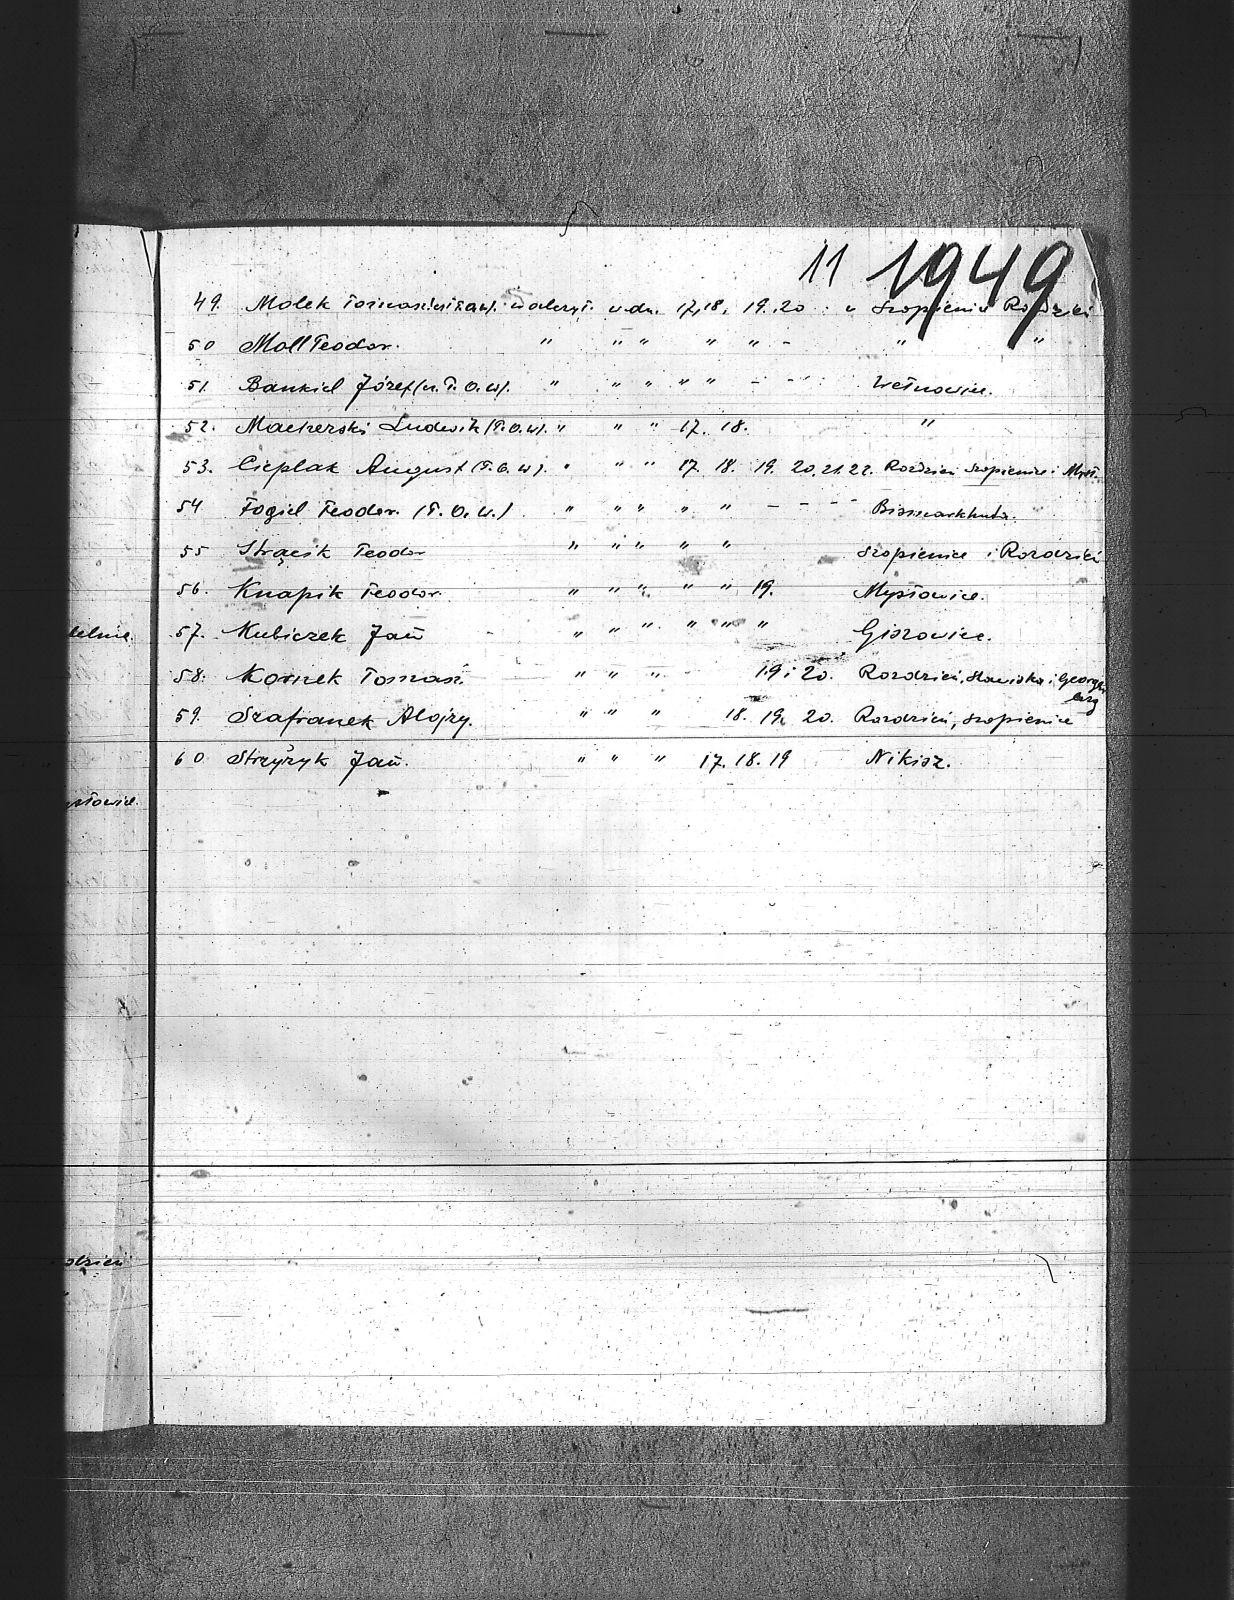 11 1949
49. Molek Tomasz walczył w dn. 17, 18, 19. 20 w Szopienic Rozdzień
50 Moll Teodor. " " " " " - " "
51. Bankiel Józef (u. P.O.W). " " " " " - - Wełnowiec.
52. Macherski Ludwik (P.O.W). " " " 17. 18. "
53. Cieplak August (P.O.W). " " " 17. 18. 19. 20. 21. 22. Rozdzień Szopienice i Mysł.
54 Fogiel Teodor. (P.O.W.) " " " " " - - - Bismarkhuta.
55 Strącik Teodor " " " " " Szopienice i Rozdzień
56. Knapik Teodor. " " " " " 19. Mysłowice.
57. Kubiczek Jan " " " " " " Giszowiec.
58. Kornek Tomasz. " " " 19 i 20. Rozdzień, Sławiska i Georgenberg
59. Szafranek Alojzy. " " " 18. 19. 20. Rozdzień, Szopienice
60 Strzyżyk Jan. " " " 17. 18. 19 Nikisz.